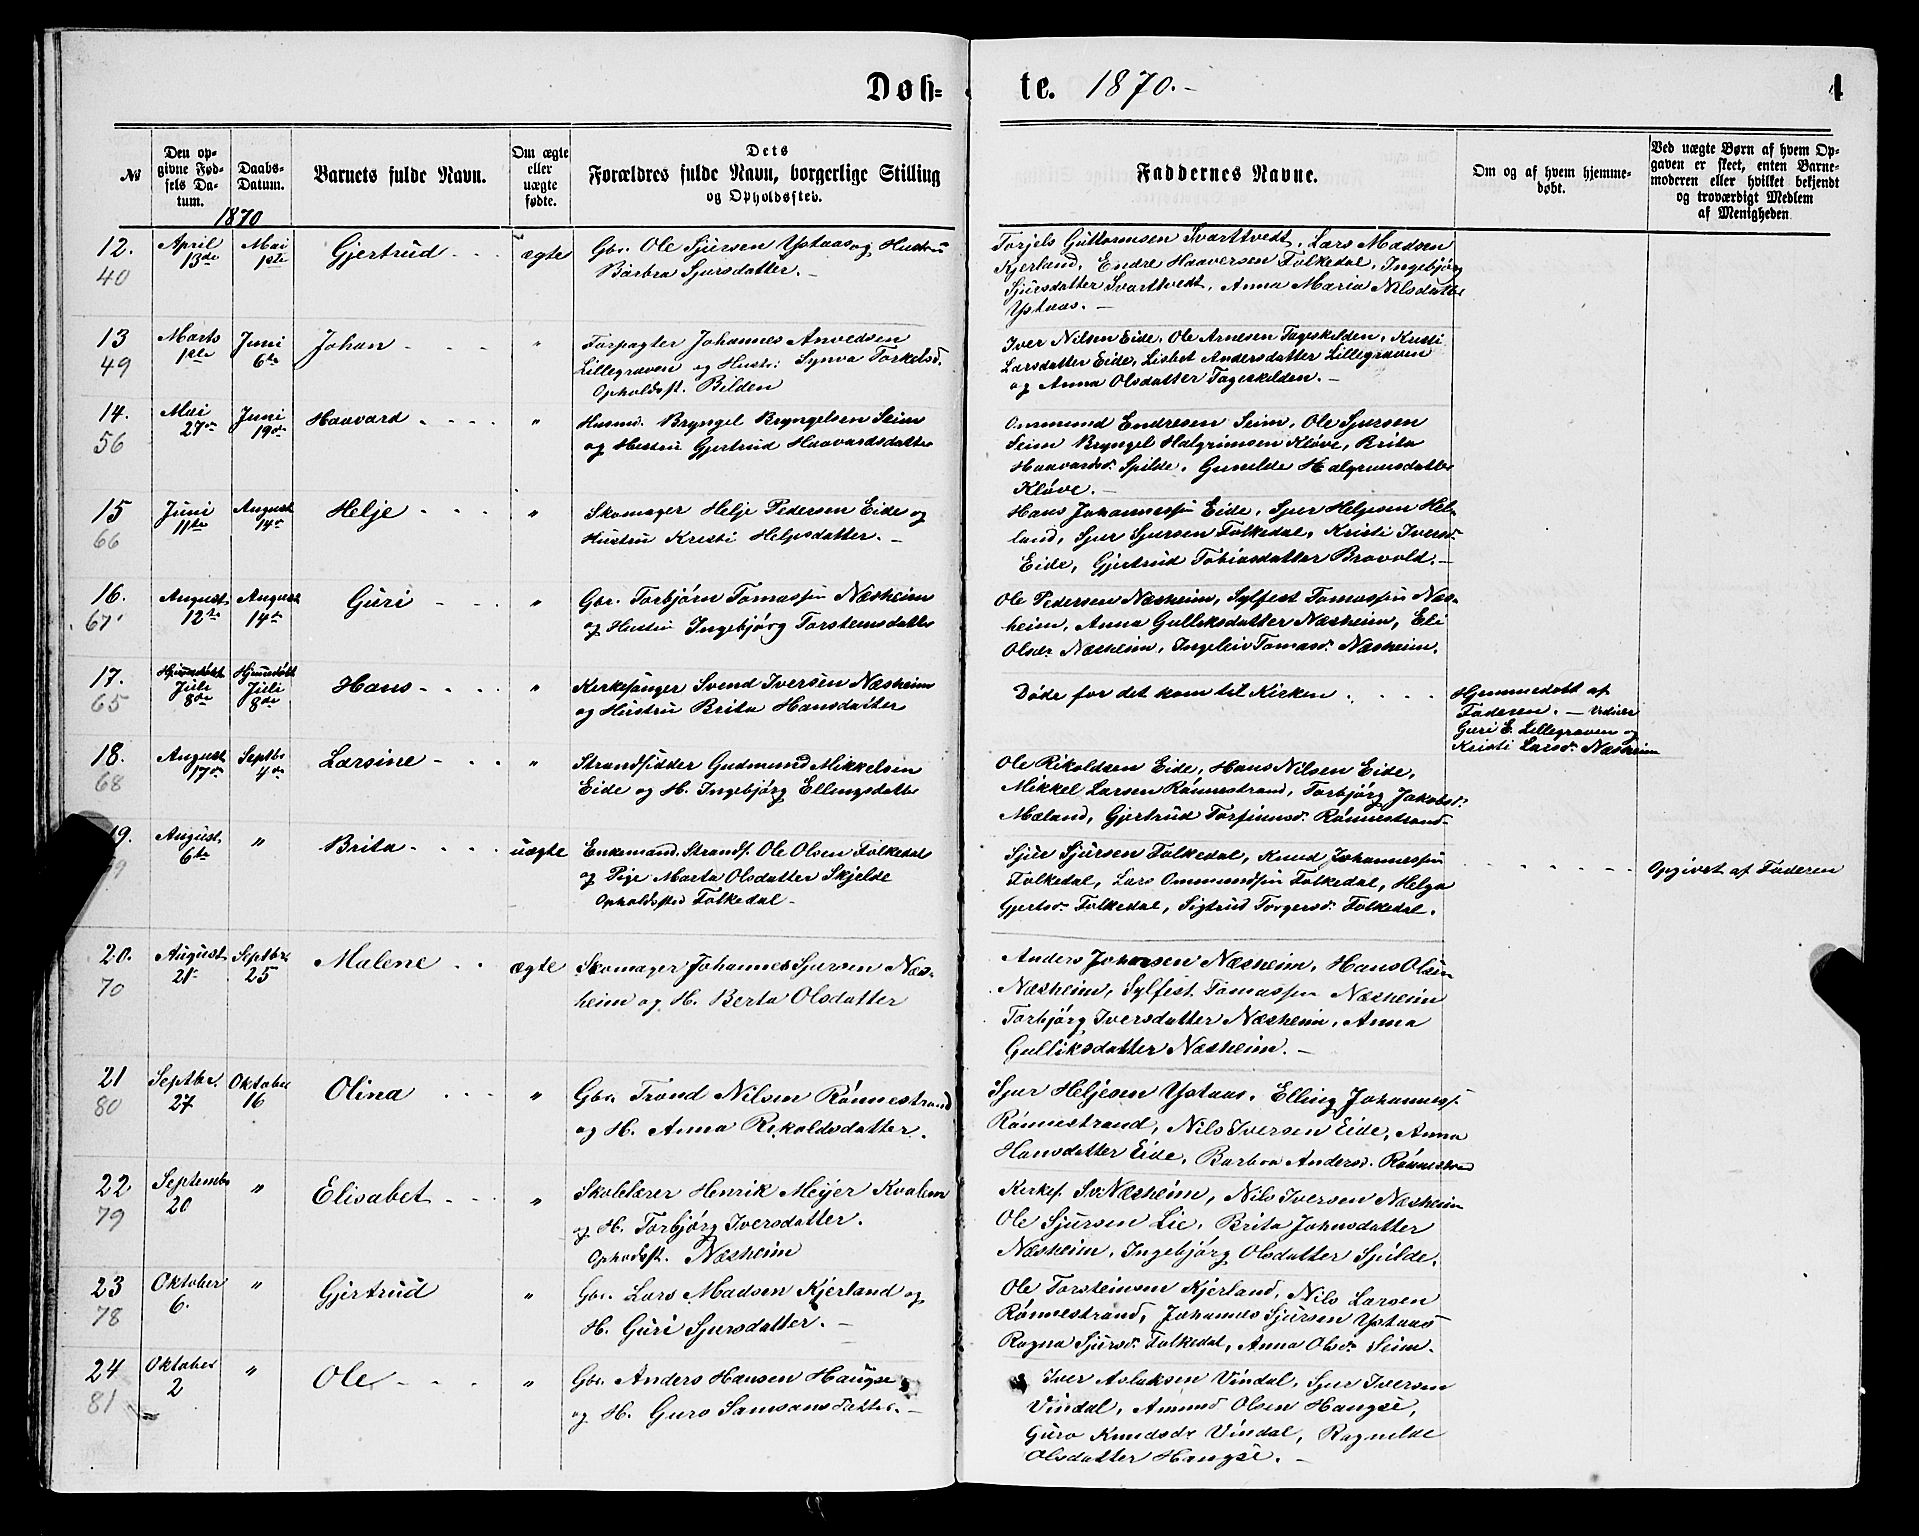 Døb- te. 1870.-
№
Den op-
givne Fød-
sels Da-
tum.
Daabs-
Datum.
Barnets fulde Navn.
Om ægte
eller
uægte
fødte.
Dets
Forældres fulde Navn, borgerlige Stilling
og Opholdssted.
Faddernes Navne.
Om og af hvem hjemme-
døbt.
Ved uægte Børn af hvem Op-
gaven er skeet, enten Barne-
moderen eller hvilket bekjendt
og troværdigt Medlem
af Menigheden
1870
12.
40
April
13de
Mai
1ste
Gjertrud
ægte
Gbr. Ole Sjursen Ystaas og Hustru
Barbra Sjursdatter.-
Torjels Guttormsen Svarttvedt, Lars Madsen
Kjerland, Endre Haaversen Folkedal, Ingebjørg
Sjursdatter Svarttvedt, Anna Maria Nilsdatter
Ystaas.-
13
49
Marts
1ste
Juni
6te
Johan
"
Forpagter Johannes Anvedsen
Lillegraven og Hustr: Synva Torkelsd.
Opholdsst. Bilden
Iver Nilsen Eide, Ole Arnesen Tageskilden, Kristi
Larsdatter Eide, Lisbet Andersdatter Lillegraven
og Anna Olsdatter Tageskilden.-
14.
56
Mai
27de
Juni
19de
Haavard
"
Husmd. Bryngel Bryngelsen Seim
og Hustru Gjertrud Haavardsdatter
Ommund Endresen Seim, Ole Sjursen
Seim Bryngel Halgrimsen Kløve, Brita
Haavardsdr. Spilde, Gunilde Halgrimsdatter
Kløve.-
15
66
Juni
11te
August
14de
Helje
"
Skomager Helje Pedersen Eide og
Hustru Kristi Heljesdatter.-
Hans Johannessen Eide, Sjur Heljesen Hel-
land, Sjur Sjursen Folkedal, Kristi Iversd.
Eide, Gjertrud Tobiasdatter Bravold.-
16.
67
August
12te
August
14de
Guri
"
Gbr. Torbjørn Tomassen Næsheim
og Hustru Ingebjørg Torstensdatter
Ole Pedersen Næsheim, Sylfest Tomassen Næs-
heim, Anna Gulliksdatter Næsheim, Eli
Olsdr. Næsheim, Ingeleiv Tomasd. Næsheim.
17.
65
Juli
8de
Hjemmedøbt
Juli
8de
Hans
"
Kirkesanger Svend Iversen Næsheim
og Hustru Brita Hansdatter
Døde før det kom til Kirken.
Hjemmedøbt af
Faderen.- Vidner
Guri E. Lillegraven og
Kristi Larsd. Næsheim
18.
68
August
17de
Septbr
4de
Larsine
"
Strandsidder Gudmund Mikkelsen
Eide og H. Ingebjørg Ellingsdatter
Ole Rikoldsen Eide, Hans Nilsen Eide,
Mikkel Larsen Rønnestrand, Torbjørg Jakobsd.
Mæland, Gjertrud Torfinnsd. Rønnestrand.
19.
August
6te
"
Brita
uægte
Enkemand. Strands. Ole Olsen Folkedal
og Pige Marta Olsdatter Skjelde
Opholdssted Folkedal-
Sjur Sjursen Folkedal, Knud Johannessen
Folkedal, Lars Ommundsen Folkedal, Helga
Gjertsdr. Folkedal, Sigtrud Torgersd. Folkedal.
Opgivet af Faderen
20.
70
August
21
Septbr.
25
Malene
ægte
Skomager Johannes Sjursen Næs-
heim og H. Berta Olsdatter
Anders Johansen Næsheim, Hans Olsen
Næsheim, Sylfest Tomassen Næsheim
Torbjørg Iversdatter Næsheim, Anna
Gulliksdatter Næsheim.-
21
80
Septbr.
27
Oktober
16
Olina
"
Gbr. Trond Nilsen Rønnestrand
og H. Anna Rikoldsdatter.
Sjur Heljesen Ystaas, Elling Johanness.
Rønnestrand, Nils Iversen Eide, Anna
Hansdatter Eide, Barbra Andersd. Rønnestrand
22
79
Septembr
20
"
Elisabet
"
Skolelærer Henrik Meyer Kvalem
og H. Torbjørg Iversdatter.
Opholdsst. Næsheim
Kirkes. Sv. Næsheim, Nils Iversen Næsheim
Ole Sjursen Lie, Brita Johnsdatter
Næsheim, Ingebjørg Olsdatter Spilde.
23
78
Oktober
6.
"
Gjertrud
"
Gbr. Lars Madsen Kjerland og
H. Guri Sjursdatter.-
Ole Torsteinsen Kjerland, Nils Larsen
Rønnestrand, Johannes Sjursen Ystaas
Ragna Sjursdr. Folkedal, Anna Olsdr. Seim.
24
81
Oktober
2
"
Ole
"
Gbr. Anders Hansen Haugse
og H. Guro Samsonsdatter.-
Iver Aslaksen Vindal, Sjur Iversen
Vindal, Amund Olsen Haugse,
Guro Knudsdr Vindal, Ragnilde
Olsdatter Haugse.-